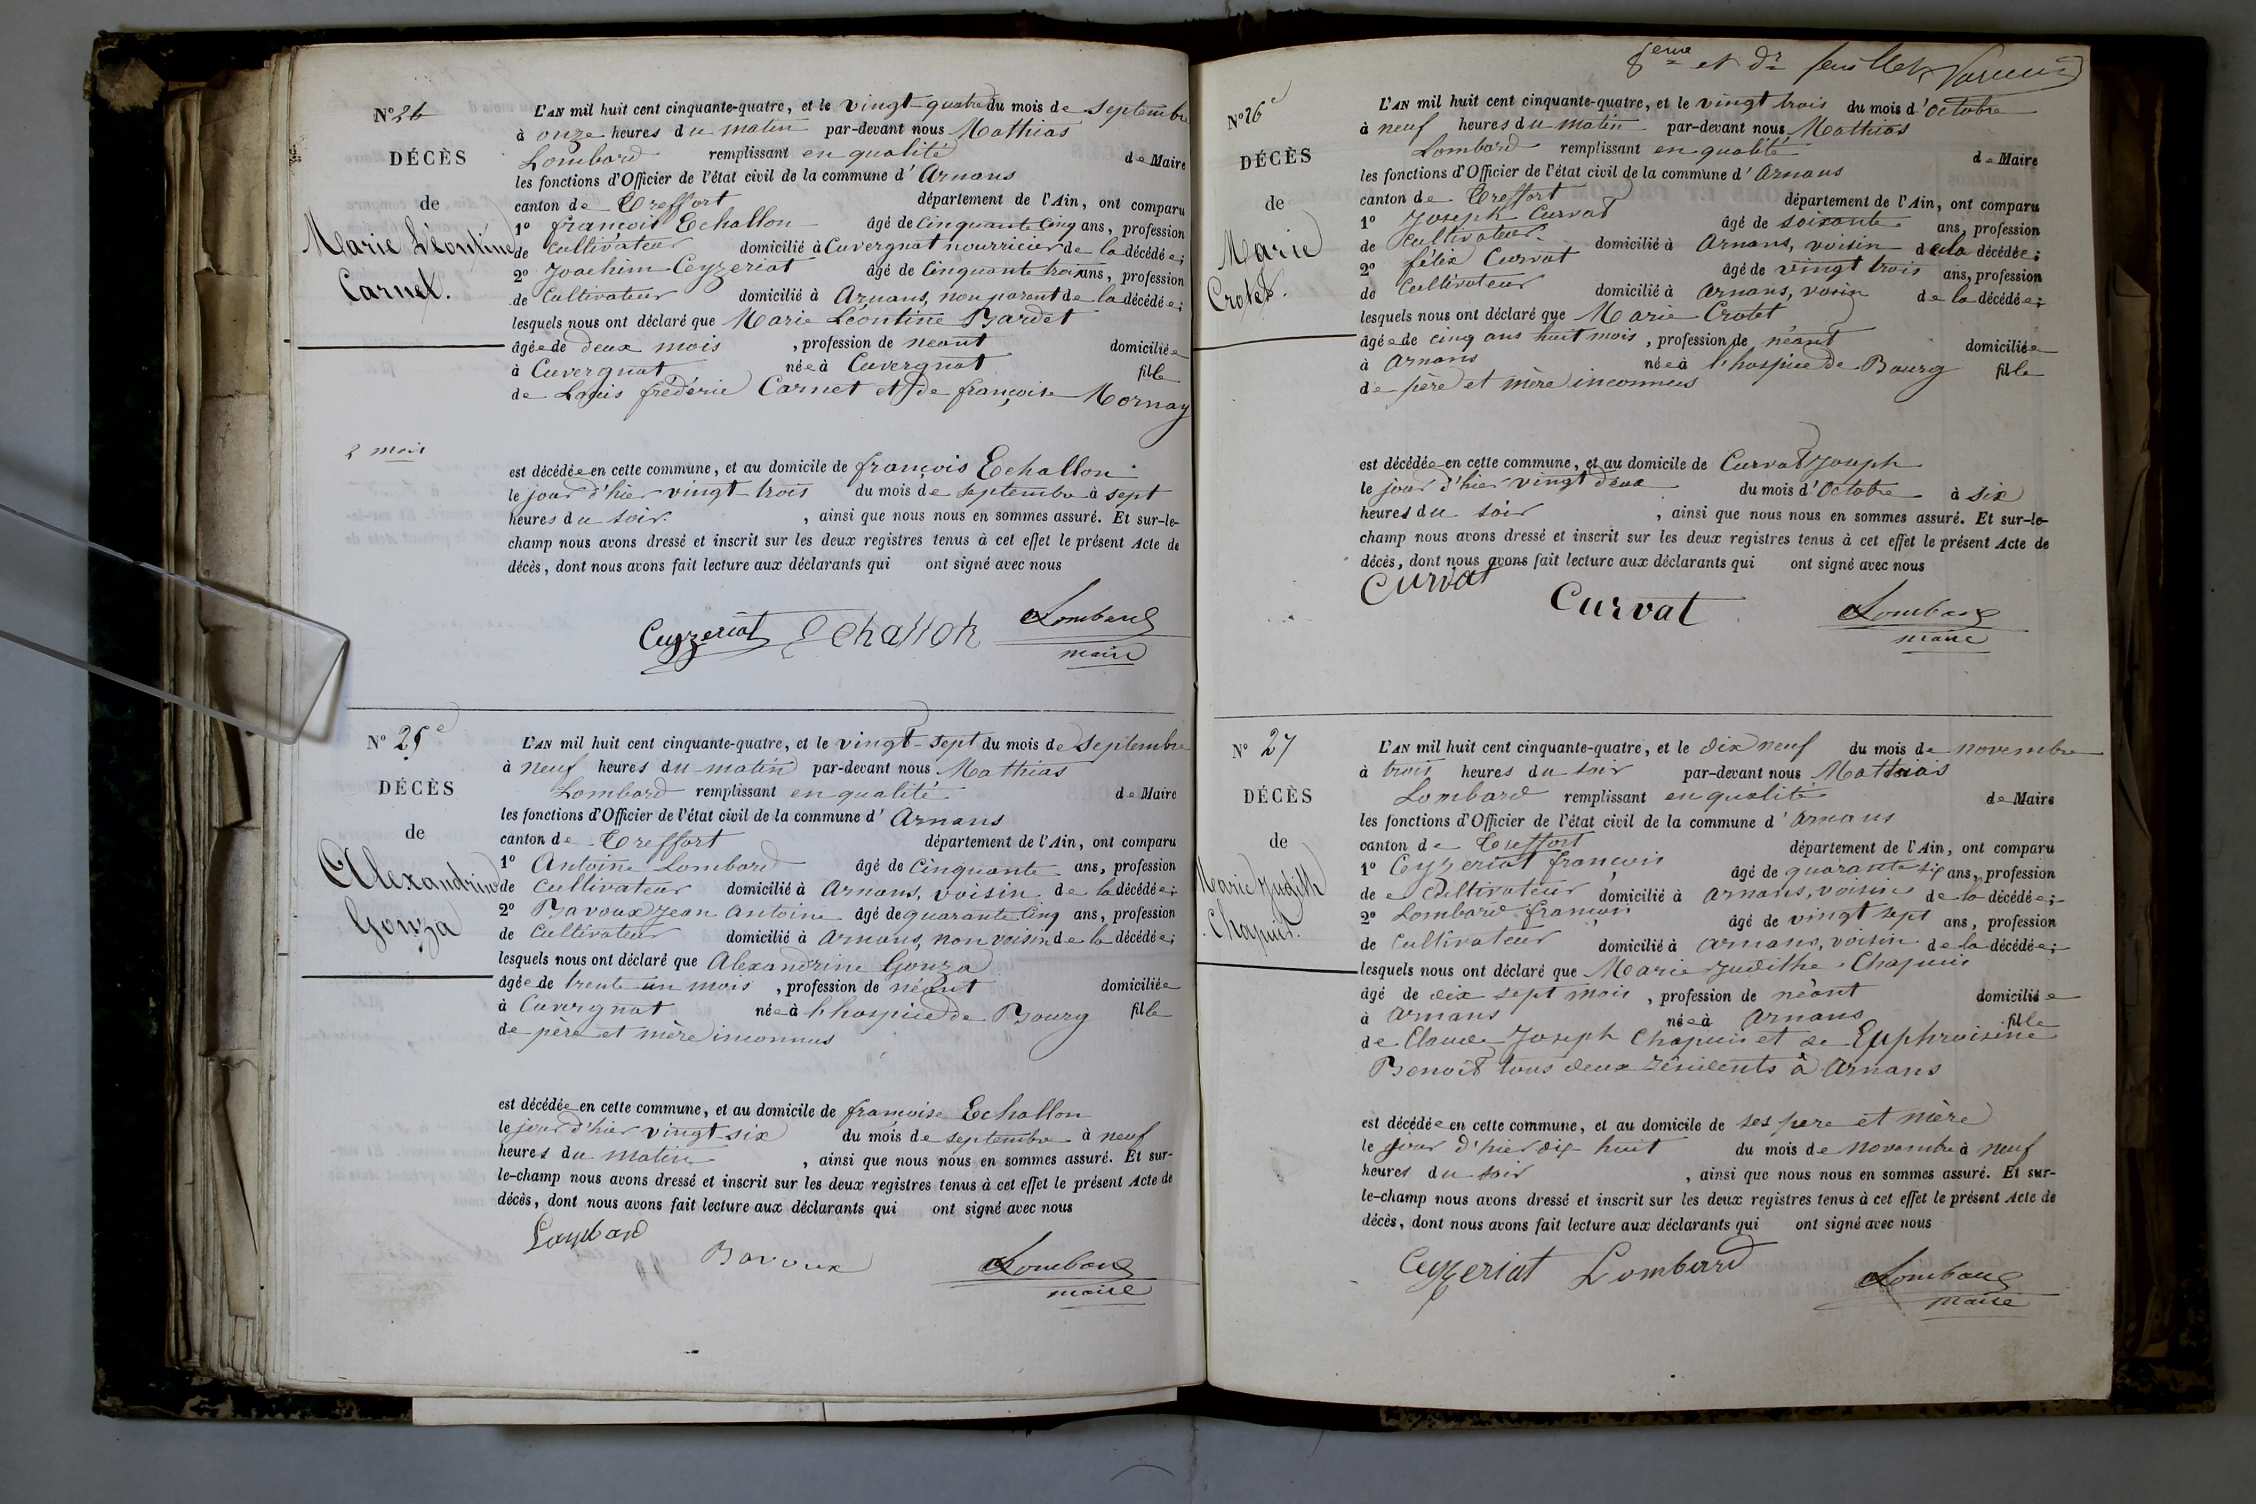 N° 24
DÉCÈS
de
Marie Léontine
Carnet.
2 mois
L'AN mil huit cent cinquante-quatre, et le vingt-quatre du mois de septembre
à onze heures du matin par-devant nous Mathias
Lombard remplissant en qualité de Maire
les fonctions d'Officier de l'état civil de la commune d'Arnans
canton de Treffort département de l'Ain, ont comparu
1° françois Echallon âgé de Cinquante Cinq ans, profession
de Cultivateur domicilié à Cuvergnat nourricier de la décédée;
2° Joachim Ceyzeriat âgé de Cinquante trois ans, profession
de Cultivateur domicilié à Arnans, non parent de la décédée;
lesquels nous ont déclaré que Marie Léontine Bardet
âgée de deux mois, profession de néant domiciliée
à Cuvergnat née à Cuvergnat fille
de Louis frédéric Carnet et de françoise Mornay
est décédée en cette commune, et au domicile de françois Echallon
le jour d'hier vingt-trois du mois de septembre à sept
heures du soir, ainsi que nous nous en sommes assuré. Et sur-le-
champ nous avons dressé et inscrit sur les deux registres tenus à cet effet le présent Acte de
décès, dont nous avons fait lecture aux déclarants qui ont signé avec nous
Ceyzeriat Echallon Lombard
maire
N° 25e
DÉCÈS
de
Alexandrine
Gouza
L'AN mil huit cent cinquante-quatre, et le vingt-sept du mois de septembre
à neuf heures du matin par-devant nous Mathias
Lombard remplissant en qualité de Maire
les fonctions d'Officier de l'état civil de la commune d'Arnans
canton de Treffort département de l'Ain, ont comparu
1° Antoine Lombard âgé de Cinquante ans, profession
de Cultivateur domicilié à Arnans, voisin de la décédée;
2° Bavoux Jean Antoine âgé de quarante Cinq ans, profession
de Cultivateur domicilié à Arnans, non voisin de la décédée;
lesquels nous ont déclaré que Alexandrine Gouza
âgée de trente un mois, profession de néant domiciliée
à Cuvergnat née à l'hospice de Bourg fille
de père et mère inconnus
est décédée en cette commune, et au domicile de françoise Echallon
le jour d'hier vingt six du mois de septembre à neuf
heures du matin, ainsi que nous nous en sommes assuré. Et sur-
le-champ nous avons dressé et inscrit sur les deux registres tenus à cet effet le présent Acte de
décès, dont nous avons fait lecture aux déclarants qui ont signé avec nous
Lombard Bavoux Lombard
maire
8eme et dr feuillet
N° 26e
DÉCÈS
de
Marie
Crotet.
L'AN mil huit cent cinquante-quatre, et le vingt trois du mois d'octobre
à neuf heures du matin par-devant nous Mathias
Lombard remplissant en qualité de Maire
les fonctions d'Officier de l'état civil de la commune d'Arnans
canton de Treffort département de l'Ain, ont comparu
1° Joseph Curvat âgé de soixante ans, profession
de Cultivateur domicilié à Arnans, voisin de la décédée;
2° félix Curvat âgé de vingt trois ans, profession
de Cultivateur domicilié à Arnans, voisin de la décédée;
lesquels nous ont déclaré que Marie Crotet
âgée de cinq ans huit mois, profession de néant domiciliée
à Arnans née à l'hospice de Bourg fille
de père et mère inconnus
est décédée en cette commune, et au domicile de Curvat Joseph
le jour d'hier vingt deux du mois d'Octobre à six
heures du soir, ainsi que nous nous en sommes assuré. Et sur-le-
champ nous avons dressé et inscrit sur les deux registres tenus à cet effet le présent Acte de
décès, dont nous avons fait lecture aux déclarants qui ont signé avec nous
Curvat Curvat Lombard
maire
N° 27
DÉCÈS
de
Marie Judith
Chapuis.
L'AN mil huit cent cinquante-quatre, et le dix neuf du mois de novembre
à trois heures du soir par-devant nous Mathias
Lombard remplissant en qualité de Maire
les fonctions d'Officier de l'état civil de la commune d'Arnans
canton de Treffort département de l'Ain, ont comparu
1° Ceyzeriat françois âgé de quarante six ans, profession
de Cultivateur domicilié à Arnans, voisin de la décédée;
2° Lombard françois âgé de vingt sept ans, profession
de Cultivateur domicilié à Arnans, voisin de la décédée;
lesquels nous ont déclaré que Marie Judithe Chapuis
âgé de dix sept mois, profession de néant domiciliée
à Arnans née à Arnans fille
de Claude Joseph Chapuis et de Euphroisine
Benoit tous deux résidents à Arnans
est décédée en cette commune, et au domicile de ses pere et mère
le jour d'hier dix huit du mois de novembre à neuf
heures du soir, ainsi que nous nous en sommes assuré. Et sur-
le-champ nous avons dressé et inscrit sur les deux registres tenus à cet effet le présent Acte de
décès, dont nous avons fait lecture aux déclarants qui ont signé avec nous
Ceyzeriat Lombard Lombard
maire